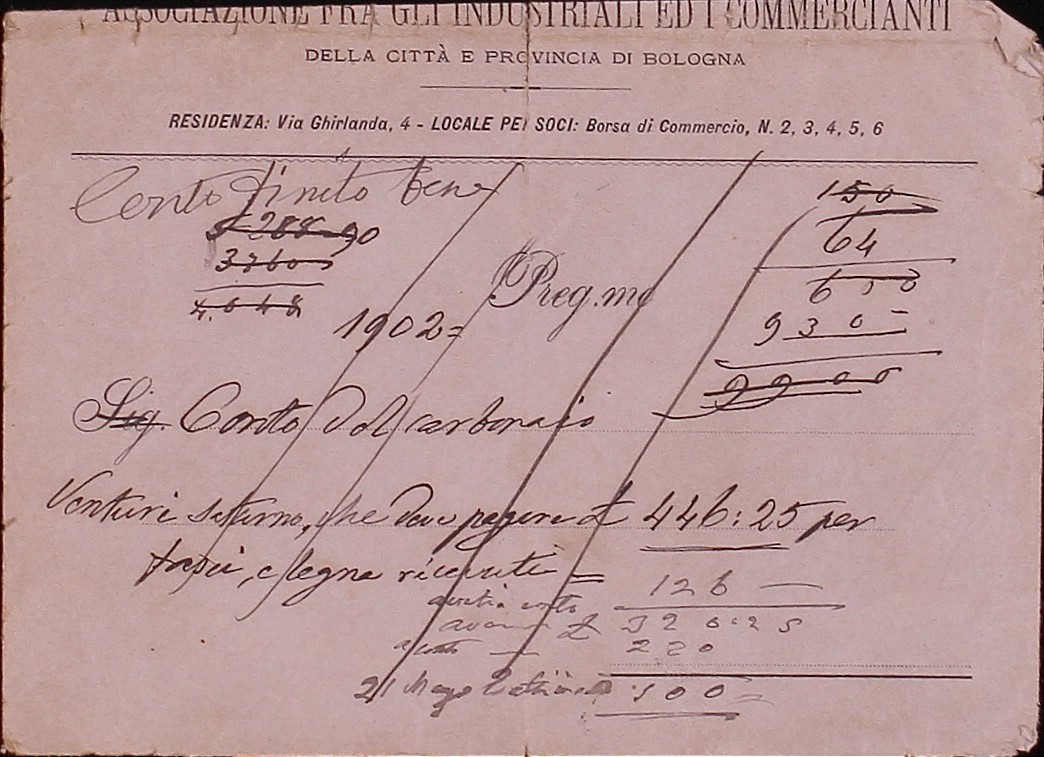 ASSOCIAZIONE FRA GLI INDUSTRIALI ED I COMMERCIANTI
DELLA CITTÀ E PROVINCIA DI BOLOGNA
RESIDENZA: Via Ghirlanda, 4 - LOCALE PEI SOCI: Borsa di Commercio, N. 2, 3, 4, 5, 6
Conto finito bene
150
64
90
3760
4.048
650
930
1902 =
Preg.mo
9900
Sig. Conto del carbonaio
Venturi Saturno, che deve pagare £ 446:25 per
fasci, e legna ricevuti = 126
conto
£ 320:25
220
21 Maggio 100